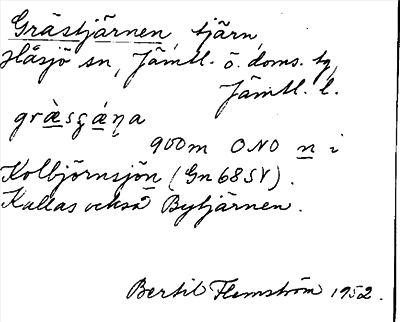 Grästjärnen, tjärn,
Håsjö sn, Jämtl. ö. doms. tg,
Jämtl. l.
græ̀sça̢ṇa
900 m ONO n i
Kolbjörnsjön (Gn 68 SV).
Kallas också Bytjärnen.
Bertil Flemström 1952.